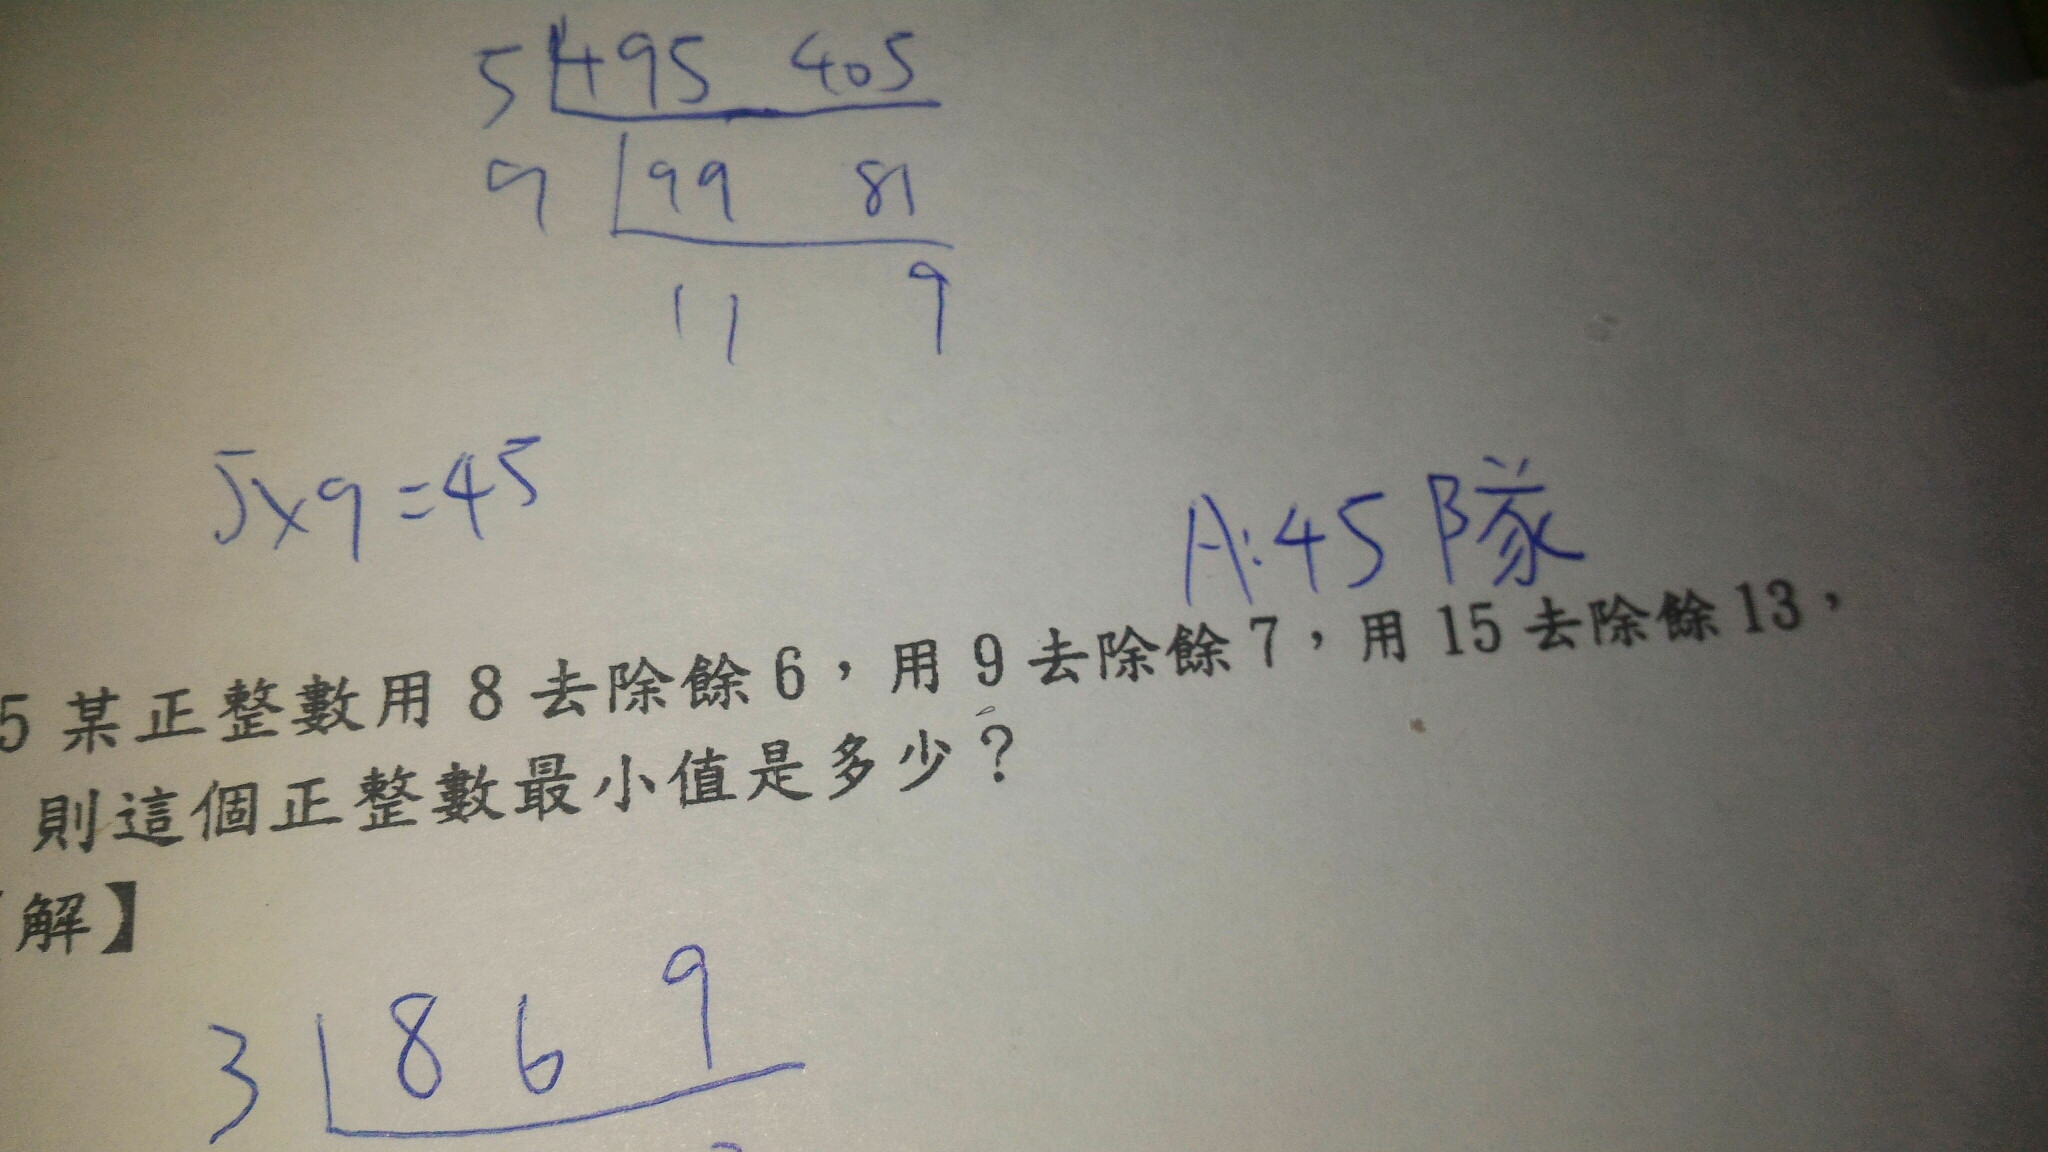 5 495 405
9 99 81
11 9
5×9=45
A:45隊
5 某正整數用 8 去除餘 6，用 9 去除餘 7，用 15 去除餘 13，
則這個正整數最小值是多少？
解】
3 8 6 9